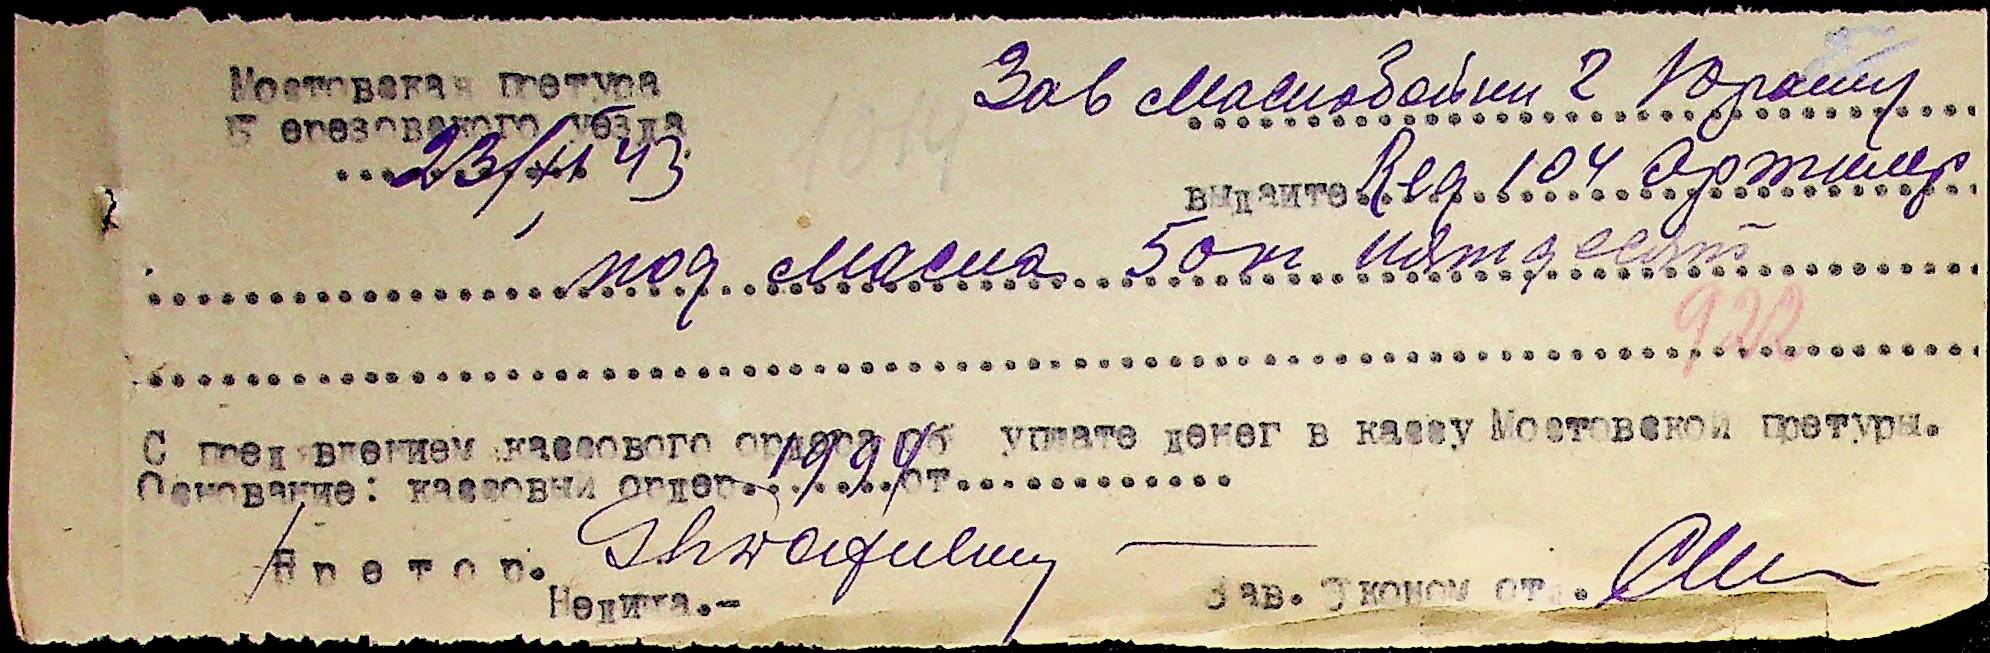 Мостовская претура
Березовского уезда
23/XII 43
1014
Зав Маслобойни г Юрашу
выдайте Reg. 104 Артилер
под масла 50 кг пятдесят
922
С пред'явлением кассового ордера об уплате денег в кассу Мостовской претуры.
Основание: кассовый ордер 1994 от
Претор.
Недитка.-
Зав. Эконом от.